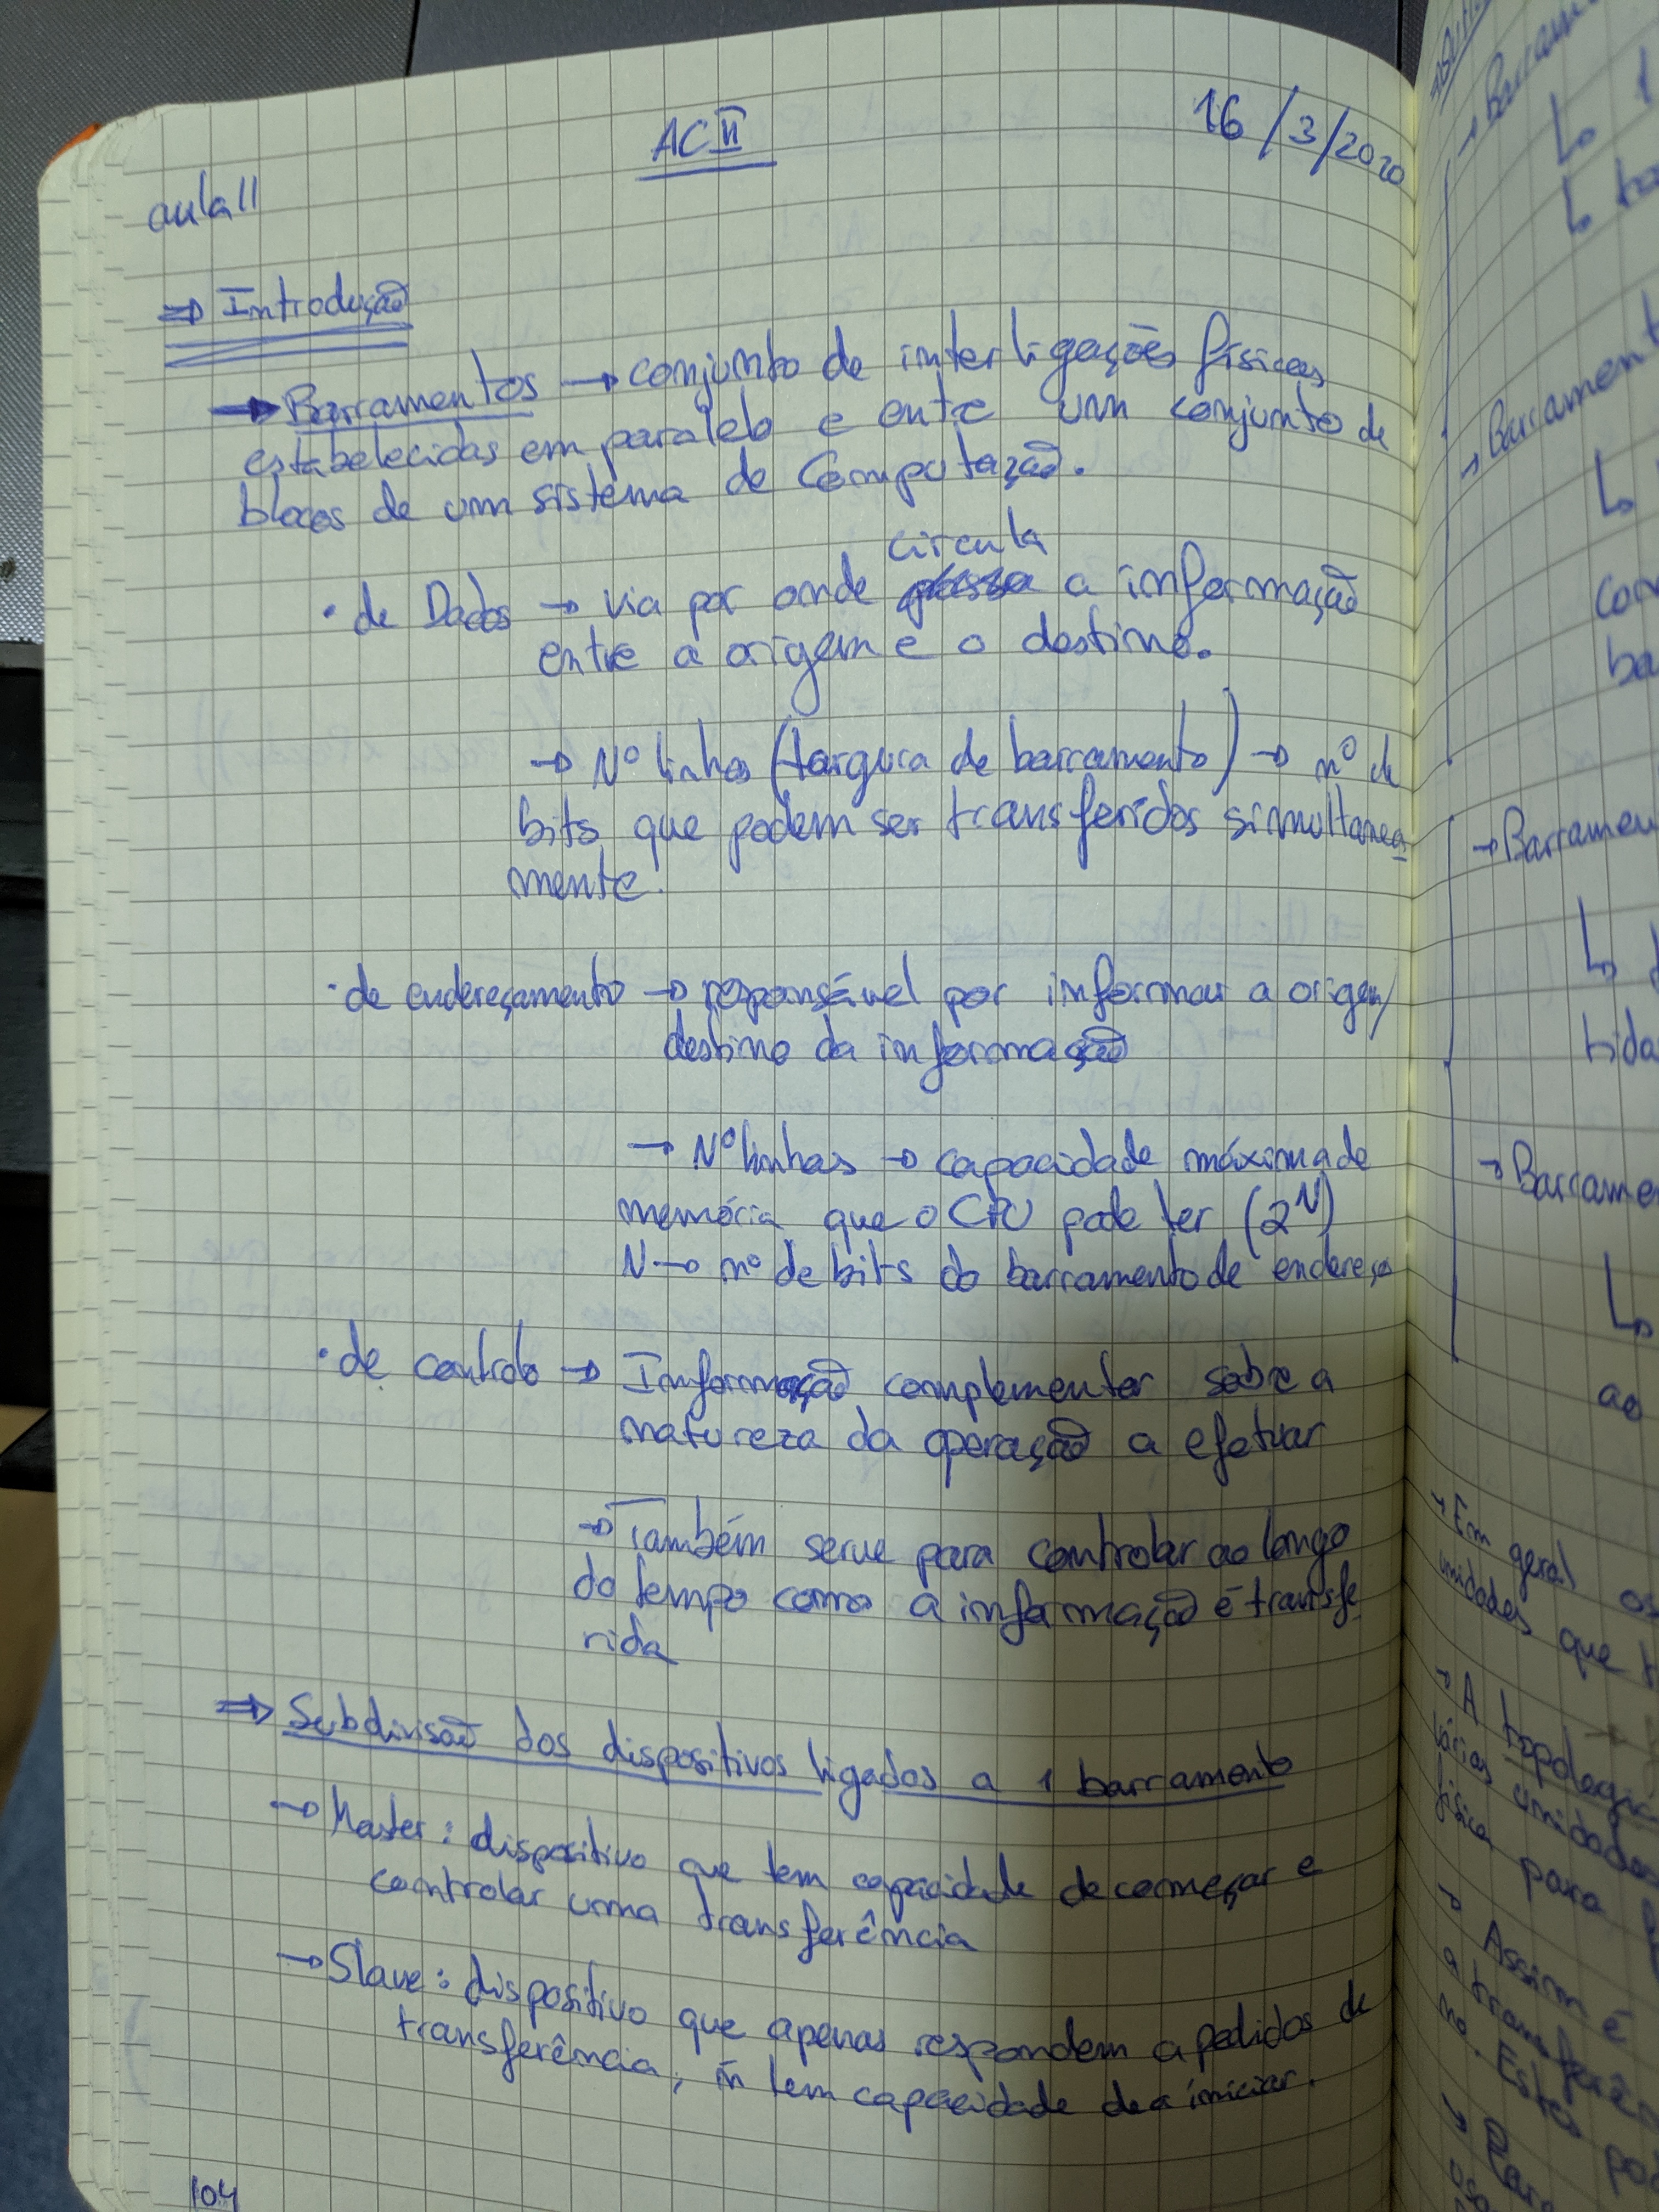 AC II
16/3/2020
aula 11
⇒ Introdução
→ Barramentos → conjunto de interligações físicas
estabelecidas em paralelo e entre um conjunto de
blocos de um sistema de Computação.
circula
• de Dados → via por onde passa a informação
entre a origem e o destino.
→ Nº linhas (largura de barramento) → nº de
bits que podem ser transferidos simultanea
mente!
• de endereçamento → responsável por informar a origem/
destino da informação
→ Nº linhas → capacidade máxima de
memória que o CPU pode ter (2^N)
N → nº de bits do barramento de endereço
• de controlo → Informação complementar sobre a
natureza da operação a efetuar
→ Também serve para controlar ao longo
do tempo como a informação é transfe
rida
⇒ Subdivisão dos dispositivos ligados a 1 barramento
→ Master: dispositivo que tem capacidade de começar e
controlar uma transferência
→ Slave: dispositivo que apenas respondem a pedidos de
transferência, ñ tem capacidade de a iniciar.
104
→ Barramen
↳ 1
↳
→ Barrament
↳
→ Barramen
↳
→ Barrame
↳
ao
→ Em geral os
unidades que
→ A topologia
várias unidades
física para
→ Assim é
a transferên
no. Estes
→ Para